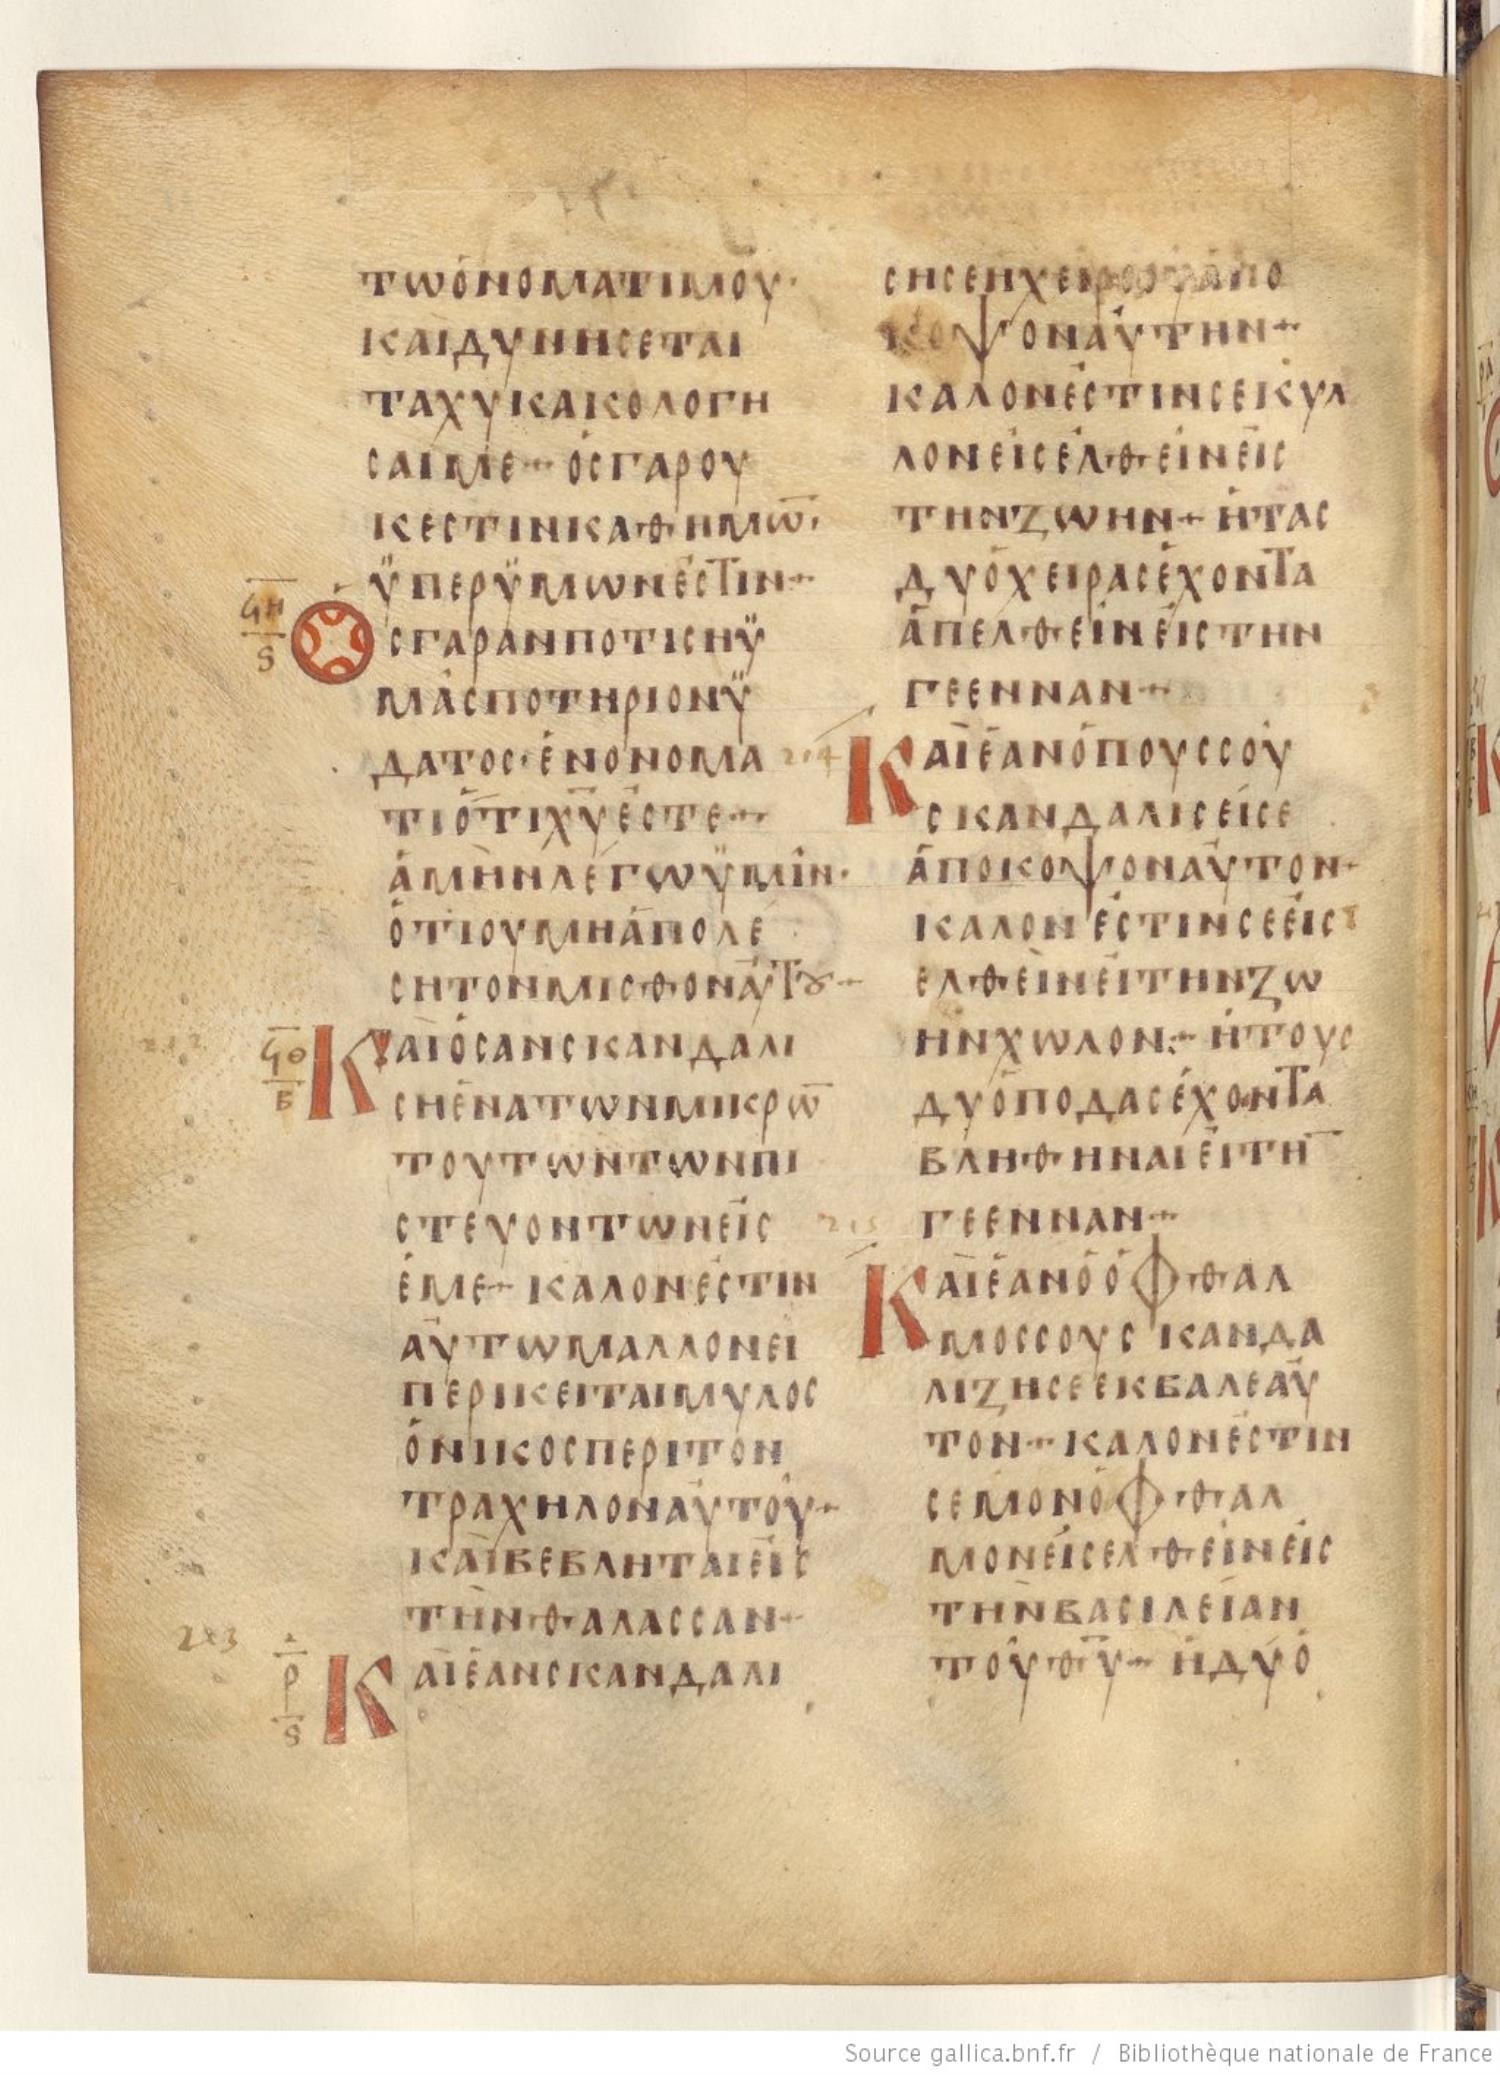 ΤΩΟΝΟΜΑΤΙΜΟΥ·
ΚΑΙΔΥΝΗϹΕΤΑΙ
ΤΑΧΥΚΑΚΟΛΟΓΗ
ϹΑΙΜΕ· ΟϹΓΑΡΟΥ
ΚΕϹΤΙΝΚΑΘΗΜΩ̅·
ΫΠΕΡΫΜΩΝΕϹΤΙΝ·
ϞΗ
Ϛ
ΟϹΓΑΡΑΝΠΟΤΙϹΗΫ
ΜΑϹΠΟΤΗΡΙΟΝΫ
ΔΑΤΟϹ·ΕΝΟΝΟΜΑ
ΤΙΟΤΙΧ̅Υ̅ΕϹΤΕ·
ΑΜΗΝΛΕΓΩΫΜΙΝ·
ΟΤΙΟΥΜΗΑΠΟΛΕ
ϹΗΤΟΝΜΙϹΘΟΝΑΥΤȢ·
212
ϞΘ
Β
ΚΑΙΟϹΑΝϹΚΑΝΔΑΛΙ
ϹΗΕΝΑΤΩΝΜΙΚΡΩ̅
ΤΟΥΤΩΝΤΩΝΠΙ
ϹΤΕΥΟΝΤΩΝΕΙϹ
ΕΜΕ· ΚΑΛΟΝΕϹΤΙΝ
ΑΥΤΩΜΑΛΛΟΝΕΙ
ΠΕΡΙΚΕΙΤΑΙΜΥΛΟϹ
ΟΝΙΚΟϹΠΕΡΙΤΟΝ
ΤΡΑΧΗΛΟΝΑΥΤΟΥ·
ΚΑΙΒΕΒΛΗΤΑΙΕΙϹ
ΤΗΝΘΑΛΑϹϹΑΝ·
213
Ρ
Ϛ
ΚΑΙΕΑΝϹΚΑΝΔΑΛΙ
ϹΗϹΕΗΧΕΙΡϹΟΥΑΠΟ
ΚΟΨΟΝΑΥΤΗΝ·
ΚΑΛΟΝΕϹΤΙΝϹΕΚΥΛ
ΛΟΝΕΙϹΕΛΘΕΙΝΕΙϹ
ΤΗΝΖΩΗΝ· ΗΤΑϹ
ΔΥΟΧΕΙΡΑϹΕΧΟΝΤΑ
ΑΠΕΛΘΕΙΝΕΙϹΤΗΝ
ΓΕΕΝΝΑΝ·
214
ΚΑΙΕΑΝΟΠΟΥϹϹΟΥ
ϹΚΑΝΔΑΛΙϹΕΙϹΕ
ΑΠΟΚΟΨΟΝΑΥΤΟΝ·
ΚΑΛΟΝΕϹΤΙΝϹΕΕΙϹ
ΕΛΘΕΙΝΕΙΤΗΝΖΩ
ΗΝΧΩΛΟΝ· ΗΤΟΥϹ
ΔΥΟΠΟΔΑϹΕΧΟΝΤΑ
ΒΛΗΘΗΝΑΙΕΙΤΗ̅
ΓΕΕΝΝΑΝ·
215
ΚΑΙΕΑΝΟΟΦΘΑΛ
ΜΟϹϹΟΥϹΚΑΝΔΑ
ΛΙΖΗϹΕΕΚΒΑΛΕΑΥ
ΤΟΝ· ΚΑΛΟΝΕϹΤΙΝ
ϹΕΜΟΝΟΦΘΑΛ
ΜΟΝΕΙϹΕΛΘΕΙΝΕΙϹ
ΤΗΝΒΑϹΙΛΕΙΑΝ
ΤΟΥΘ̅Υ̅· ΗΔΥΟ
Source gallica.bnf.fr / Bibliothèque nationale de France